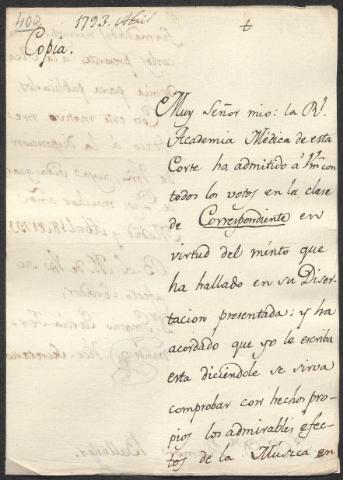 402
1793. Abril
Copia.
Muy Señor mio: la Rl.
Academia Médica de esta
Corte ha admitido á Vm con
todos los votos en la clase
de Correspondiente en
virtud del mérito que
ha hallado en su Diser-
tacion presentada: y ha
acordado que yo le escriba
esta diciéndole se sirva
comprobar con hechos pro-
pios los admirables efec-
tos de la Música en